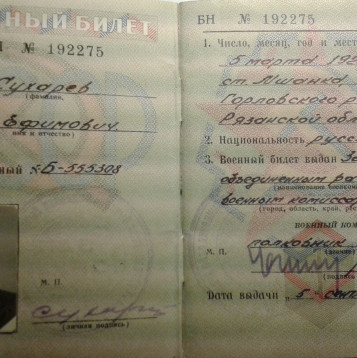 ННЫЙ БИЛЕТ
№ 192275
Сухарев
(фамилия,
Ефимович.
имя и отчество)
Б-555308
М. П.
(личная подпись)
БН № 192275
1. Число, месяц, год и мест
5 марта 19
ст. Мшанка
Горловского р
Рязанской обл
2. Национальность русс
3. Военный билет выдан За
объединенным ра
(наименование
военным комисса
(город, область, край, рес
военный ком
М. П.
полковник
(звание)
(подпись
Дата выдачи „5 - сент